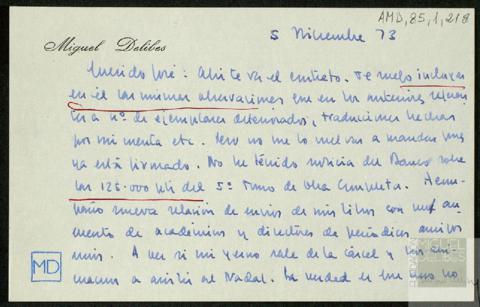 AMD, 85, 1, 218
5 Diciembre 73
Miguel Delibes
Querido José: Ahí te va el contrato. Te ruego incluyas
en él las mismas observaciones que en los anteriores
a nº de ejemplares deteriorados, traducciones hechas
por mi cuenta etc. Pero no me lo vuelvas a mandar pues
ya está firmado. No he tenido noticia del Banco sobre
las 125.000 pts del 5º tomo de Obra Completa. Acom-
paño nueva relación de envíos de mis libros con un au-
mento de académicos y directores de periódicos amigos
míos. A ver si mi yerno sale de la cárcel y nos ani-
mamos a asistir al Nadal. La verdad es que no
MD
FUNDACIÓN
MIGUEL
DELIBES